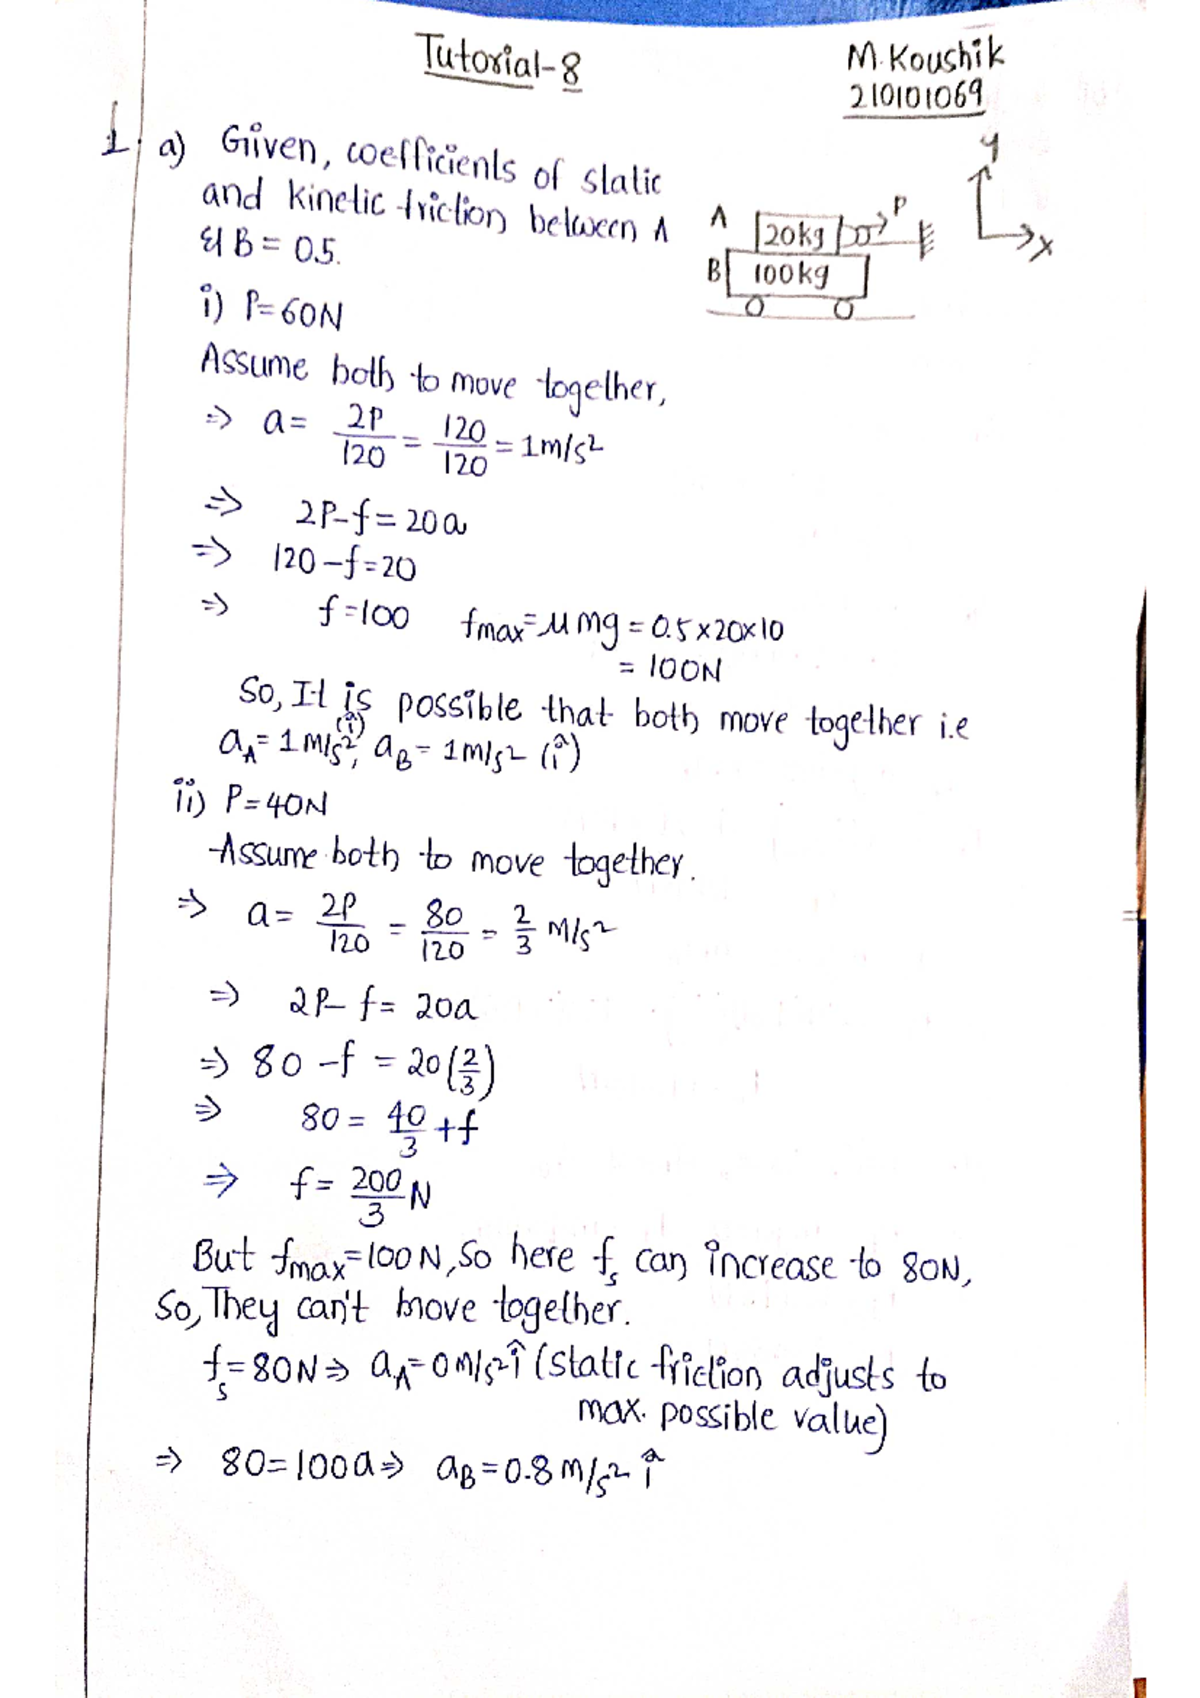 Tutorial-8
M.Koushik
210101069
1. a) Given, coefficients of static
and kinetic friction between A
& B = 0.5.
y
x
A
20kg
P
B
100kg
i) P=60N
Assume both to move together,
⇒ a = 2P/120 = 120/120 = 1m/s²
⇒ 2P-f = 20a
⇒ 120-f=20
⇒ f=100 fmax=μmg = 0.5×20×10
= 100N
So, It is possible that both move together i.e
a_A = 1m/s² (î), a_B = 1m/s² (î)
ii) P=40N
Assume both to move together.
⇒ a = 2P/120 = 80/120 = 2/3 m/s²
⇒ 2P-f = 20a
⇒ 80-f = 20(2/3)
⇒ 80 = 40/3 + f
⇒ f = 200/3 N
But fmax=100N, So here f_s can increase to 80N,
So, They can't move together.
f_s=80N ⇒ a_A=0m/s² î (static friction adjusts to
max. possible value)
⇒ 80=100a ⇒ a_B=0.8m/s² î